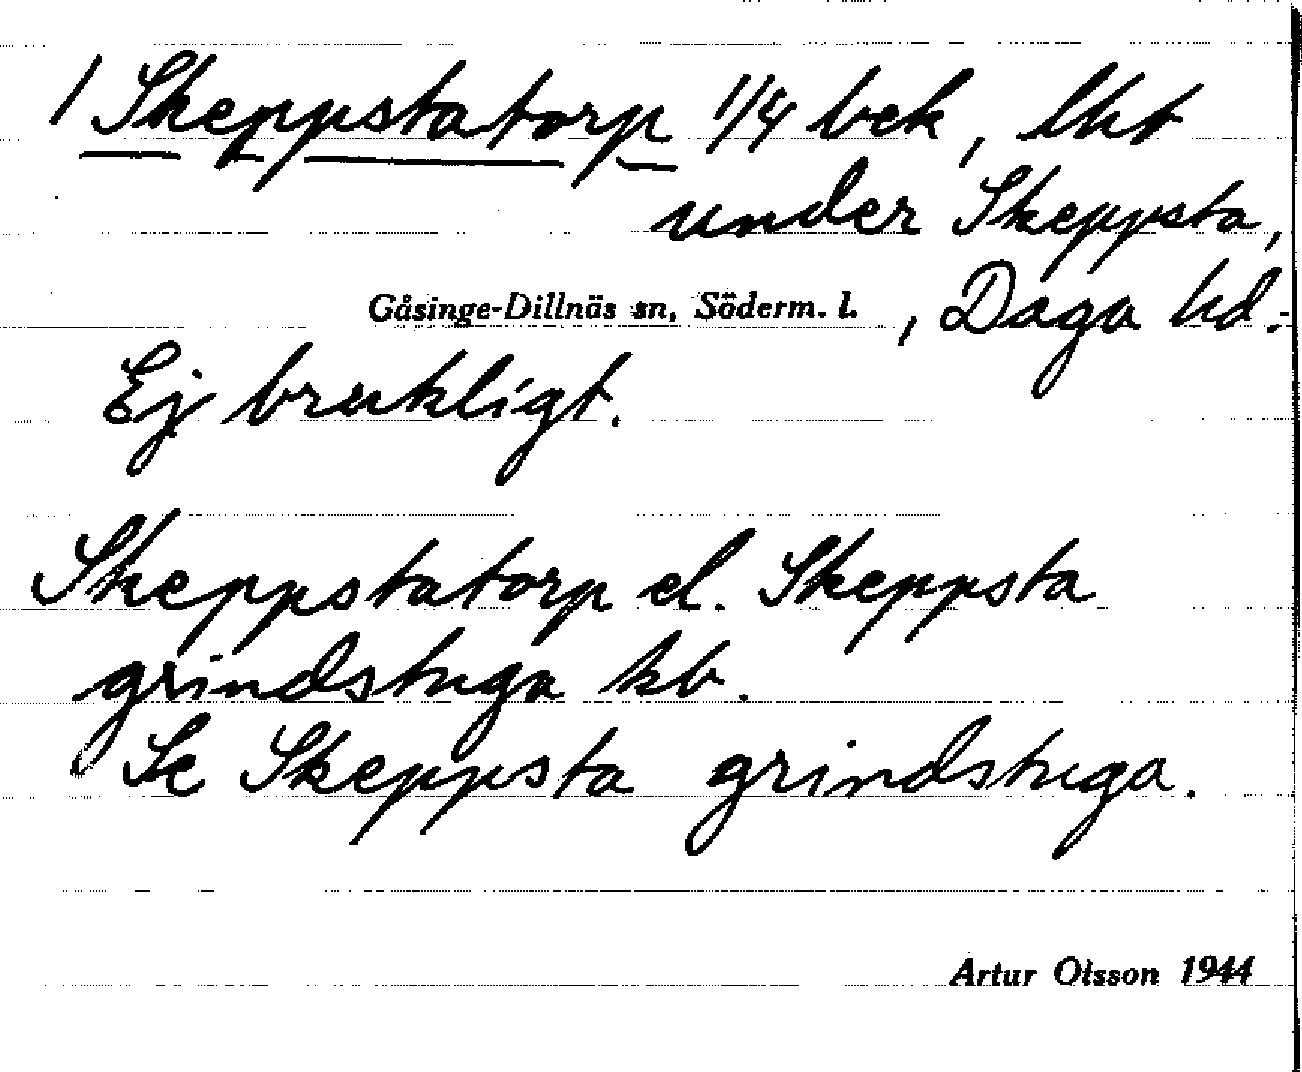 / Skeppstatorp 1/4 bek, lht
under Skeppsta,
Gåsinge-Dillnäs sn, Söderm. l. , Daga hd.
Ej brukligt.
Skeppstatorp el. Skeppsta
grindstuga kb.
Se Skeppsta grindstuga.
Artur Olsson 1944